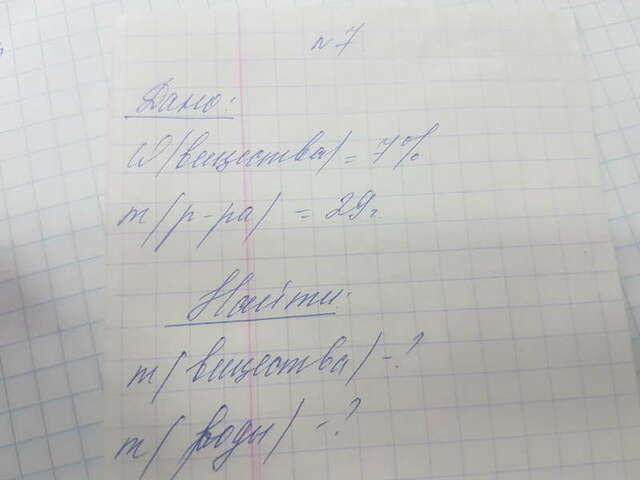 №7
Дано:
W(вещества) = 7%
m(р-ра) = 29г.
Найти:
m(вещества) - ?
m(воды) - ?